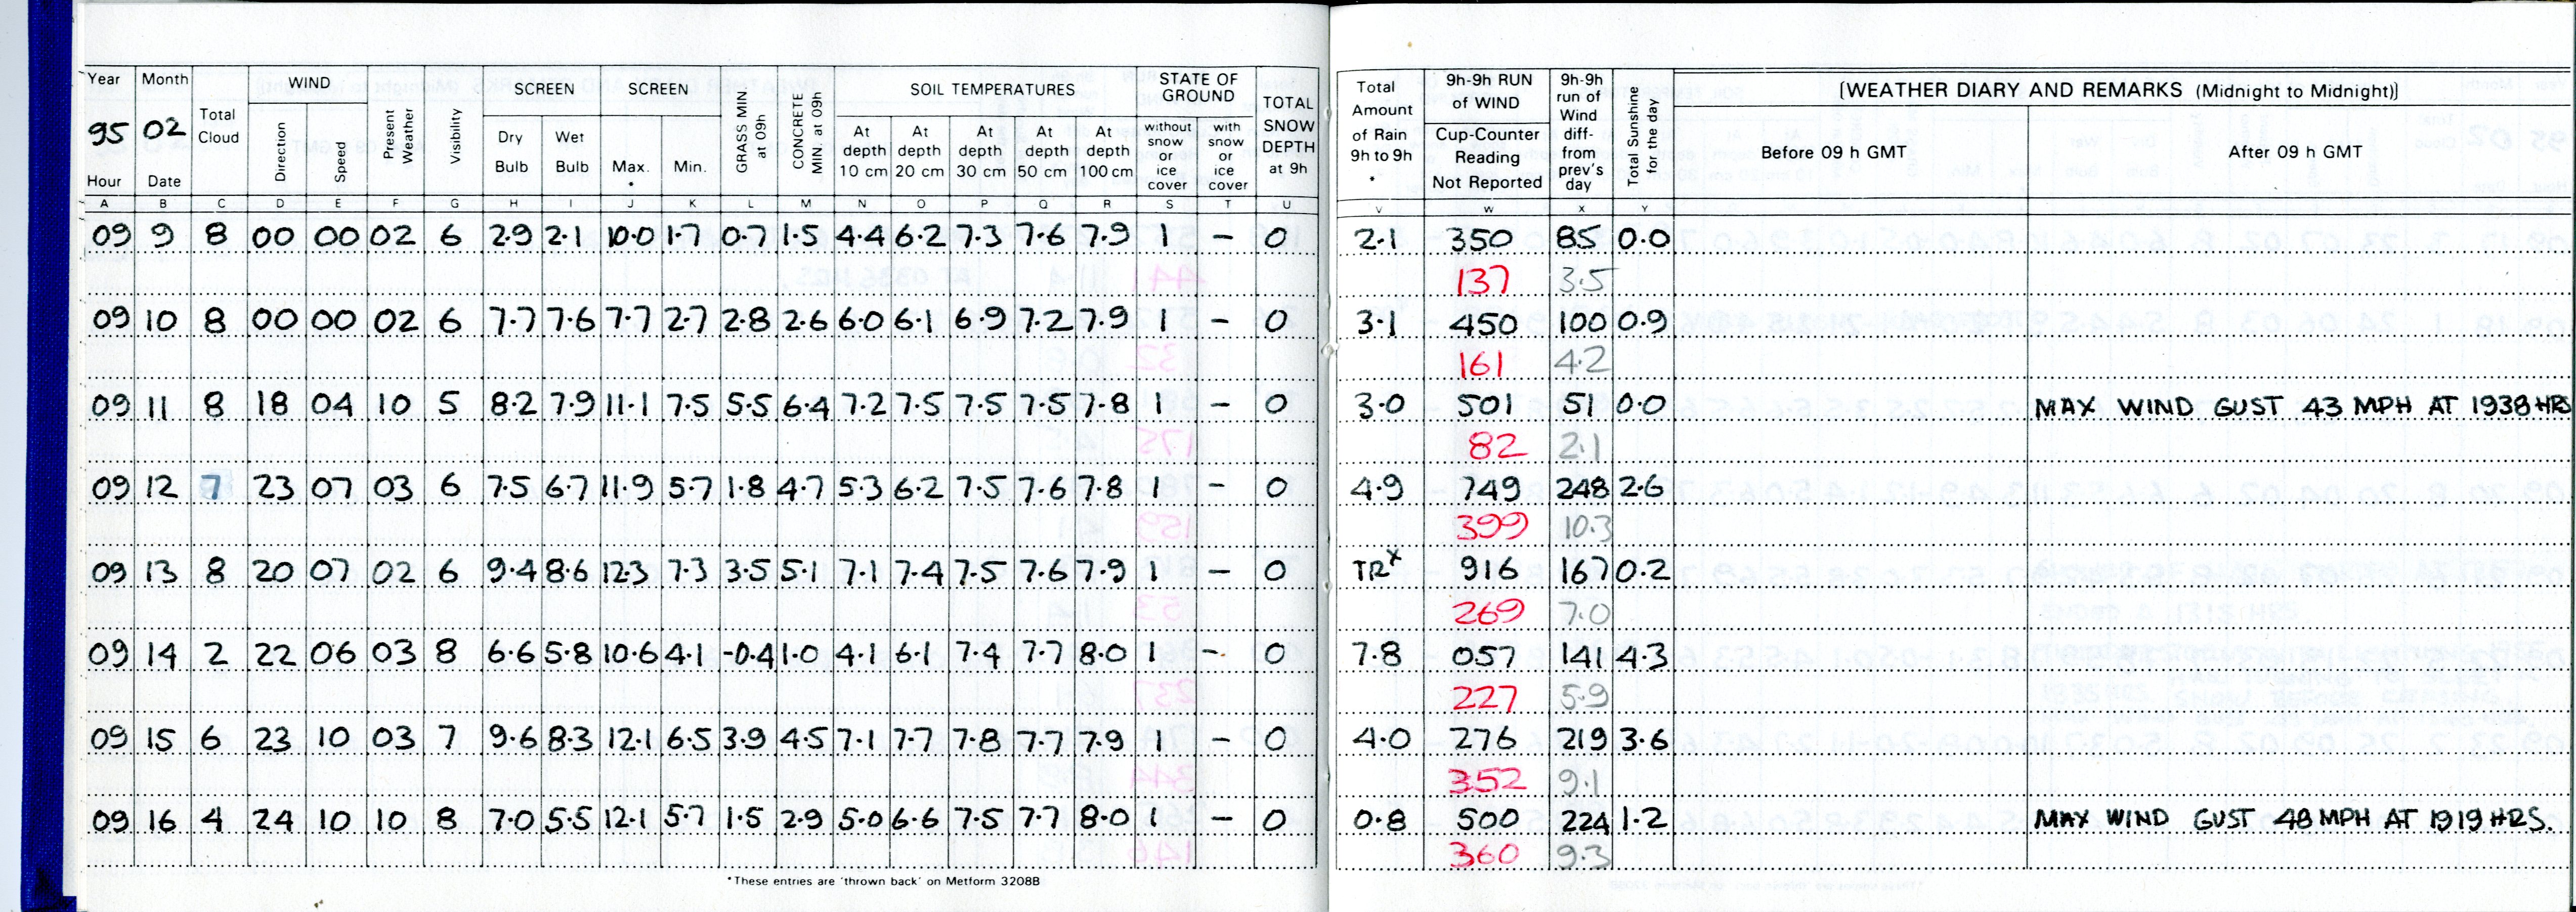 Year Month WIND SCREEN SCREEN SOIL TEMPERATURES STATE OF GROUND
95 02 Total Cloud Direction Speed Present Weather Visibility Dry Bulb Wet Bulb Max. * Min. GRASS MIN at 09h CONCRETE MIN at 09h At depth 10 cm At depth 20 cm At depth 30 cm At depth 50 cm At depth 100 cm without snow or ice cover with snow or ice cover TOTAL SNOW DEPTH at 9h
Hour Date
Total Amount of Rain 9h to 9h * 9h-9h RUN of WIND Cup-Counter Reading Not Reported 9h-9h run of Wind diff- from prev's day Total Sunshine for the day [WEATHER DIARY AND REMARKS (Midnight to Midnight)]
Before 09 h GMT After 09 h GMT
A B C D E F G H I J K L M N O P Q R S T U V W X Y
09 9 8 00 00 02 6 2.9 2.1 10.0 1.7 0.7 1.5 4.4 6.2 7.3 7.6 7.9 1 – 0 2.1 350 85 0.0
137 3.5
09 10 8 00 00 02 6 7.7 7.6 7.7 2.7 2.8 2.6 6.0 6.1 6.9 7.2 7.9 1 – 0 3.1 450 100 0.9
161 4.2
09 11 8 18 04 10 5 8.2 7.9 11.1 7.5 5.5 6.4 7.2 7.5 7.5 7.5 7.8 1 – 0 3.0 501 51 0.0 MAX WIND GUST 43 MPH AT 1938 HRS
82 2.1
09 12 7 23 07 03 6 7.5 6.7 11.9 5.7 1.8 4.7 5.3 6.2 7.5 7.6 7.8 1 – 0 4.9 749 248 2.6
399 10.3
09 13 8 20 07 02 6 9.4 8.6 12.3 7.3 3.5 5.1 7.1 7.4 7.5 7.6 7.9 1 – 0 TRx 916 167 0.2
269 7.0
09 14 2 22 06 03 8 6.6 5.8 10.6 4.1 -0.4 1.0 4.1 6.1 7.4 7.7 8.0 1 – 0 7.8 057 141 4.3
227 5.9
09 15 6 23 10 03 7 9.6 8.3 12.1 6.5 3.9 4.5 7.1 7.7 7.8 7.7 7.9 1 – 0 4.0 276 219 3.6
352 9.1
09 16 4 24 10 10 8 7.0 5.5 12.1 5.7 1.5 2.9 5.0 6.6 7.5 7.7 8.0 1 – 0 0.8 500 224 1.2 MAX WIND GUST 48 MPH AT 1919 HRS.
360 9.3
*These entries are 'thrown back' on Metform 3208B